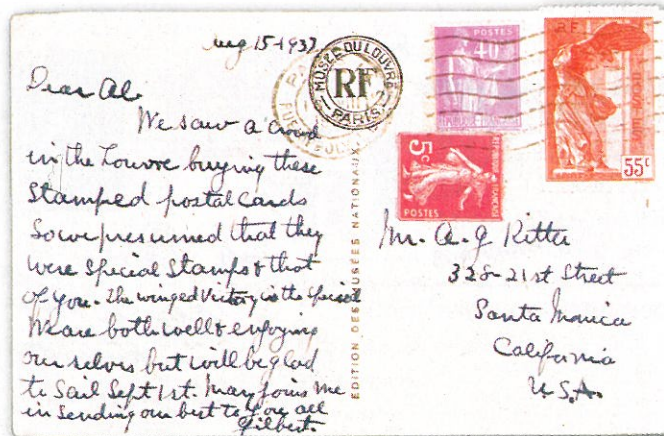 Aug 15-1937
Dear Al.
We saw a crowd
in the Louvre buying these
Stamped postal cards
So we presumed that they
were Special Stamps & that
of you - The winged Victory is the special
We are both well & enjoying
ourselves but will be glad
to Sail Sept 1st. Mary joins me
in sending our best to you all
Gilbert.
EDITION DES MUSÉES NATIONAUX
MUSÉE DU LOUVRE
RF
PARIS
POSTES
40c
RÉPUBLIQUE FRANÇAISE
5c
POSTES
R.F.
55c
Mr. A. J Ritter
328-21st Street
Santa Monica
California
U.S.A.